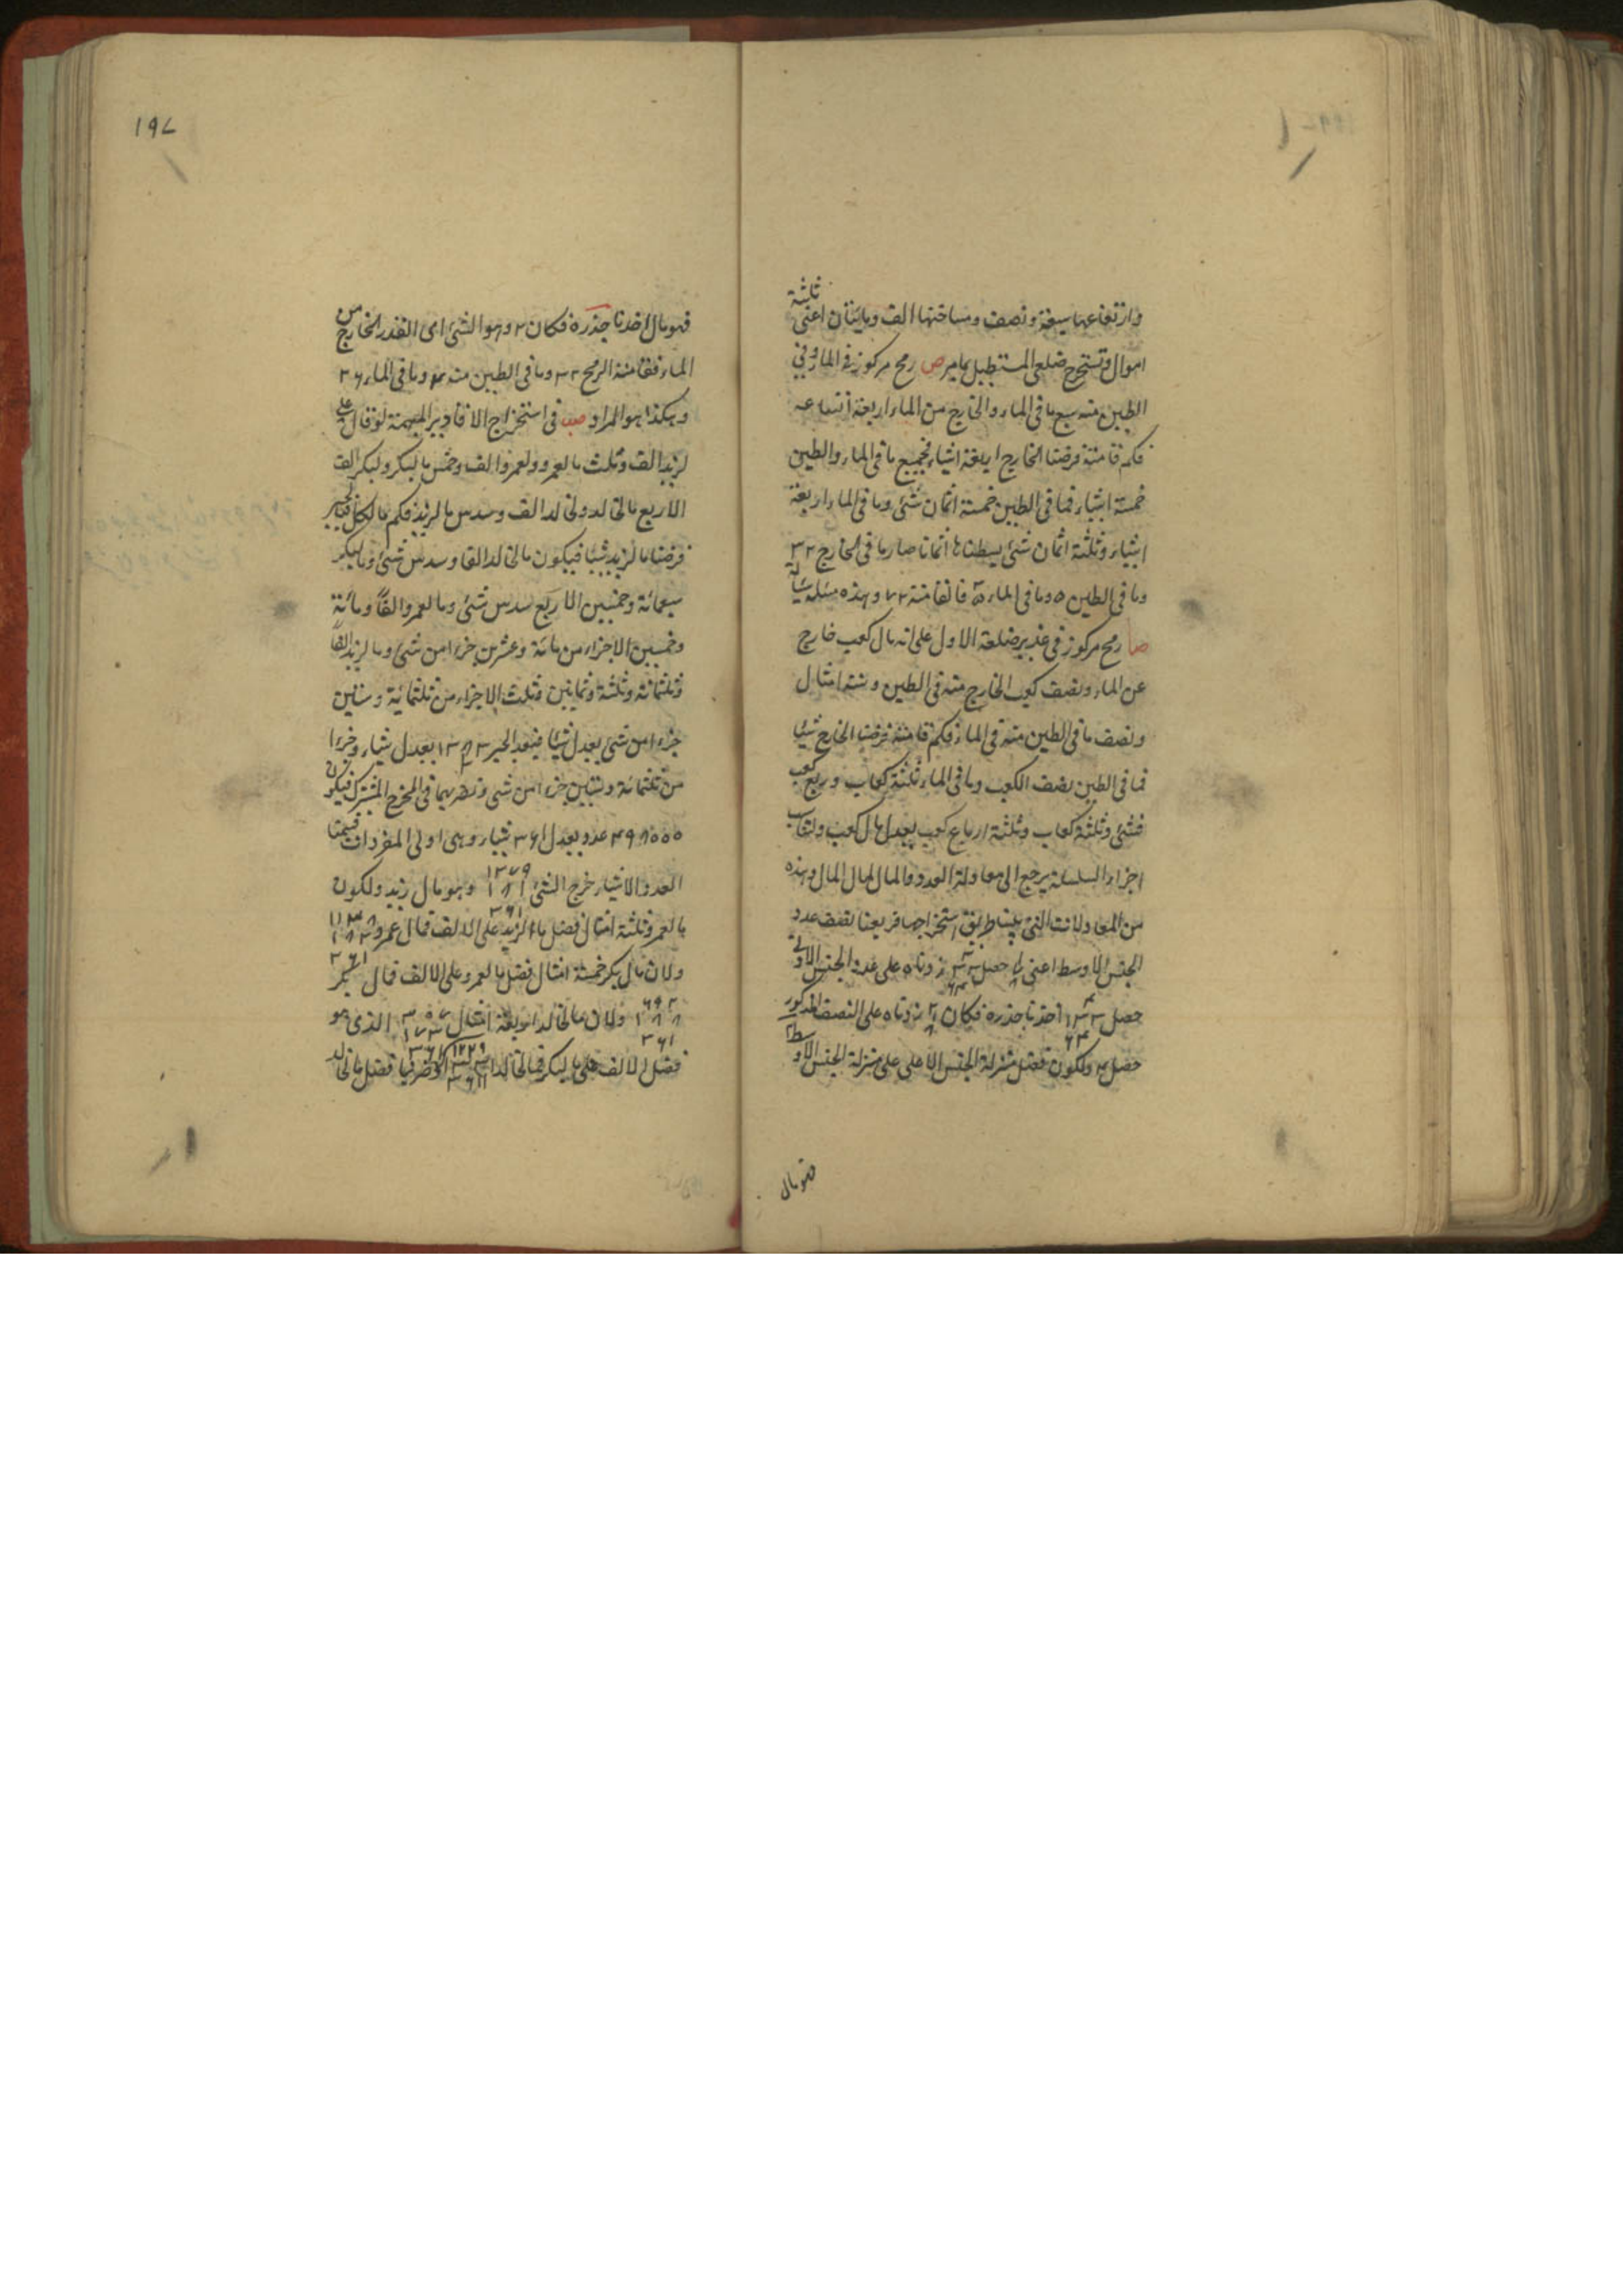 وارتفاعها سبعة ونصف ومساحتها الف ومايتان اعنى ثلثة
اموال وتستخرج ضلعى المستطيل بمامر ص رمح مركوز فى الماء وفى
الطين منه سبع ما فى الماء والخارج من الماء اربعة
فكم قامته فرضنا الخارج اربعة اشياء فجميع ما فى الماء والطين
خمسة اشياء فما فى الطين خمسة اثمان شئ وما فى الماء اربعة
اشياء وثلثة اثمان شئ بسطناها اثمانا صار ما فى الخارج ٣٢
وما فى الطين ٥ وما فى الماء ٣٥ فالقامة ٧٢ وهذه مسئلة سيالة
صا رمح مركوز فى غدير ضلعه الاول على انه مال كعب خارج
عن الماء ونصف كعب الخارج منه فى الطين وستة امثال
ونصف ما فى الطين منه فى الماء فكم قامته فرضنا الخارج شيئا
فما فى الطين نصف الكعب وما فى الماء ثلثة كعاب وربع كعب
فشئ وثلثة كعاب وثلثة ارباع كعب يعدل مال كعب
اجزاء السلسلة يرجع الى معادلة العدد والمال لمال المال وهذه
من المعادلات التى استخراجها فربعنا نصف عدد
الجنس الاوسط اعنى حصل زدناه على عدة الجنس
حصل اخذنا جذره فكان زدناه على النصف المذكور
حصل ٤ ولكون فضل منزلة الجنس الاعلى على منزلة الجنس الاوسط ٢
فهو مال
١٩٧
فهو مال اخذنا جذره فكان ٢ وهو الشئ اى القدر الخارج من
الماء فقامة الرمح ٣٢ وما فى الطين منه ٤ وما فى الماء ٢٦
وهكذا هو المراد صب فى استخراج الاقادير المبهمة لو قال على
لزيد الف وثلث ما لعمرو ولعمرو الف وخمس ما لبكر ولبكر الف
الاربع ما لخالد ولخالد الف وسدس ما لزيد فكم ما لكل فبالجبر
فرضنا ما لزيد شيئا فيكون ما لخالد الفا وسدس شئ وما لبكر
سبعمائة وخمسين الا ربع سدس شئ وما لعمرو الفا ومائة
وخمسين الا جزاء من مائة وعشرين جزءا من شئ وما لزيد الفا
وثلثمائة وثلثة وثمانين وثلث الا جزاء من ثلثمائة وستين
جزءا من شئ يعدل شيئا فبعد الجبر ١٣٨٣ يعدل شيئا وجزءا
من ثلثمائة وستين جزءا من شئ ونضربهما فى المخرج المشترك فيكون
٤٩٨٠٠٠ عدد يعدل ٣٦١ شيئا وهى اولى المفردات قسمنا
العدد والاشياء خرج الشئ ١٣٧٩ وهو مال زيد ولكون
ما لعمرو ثلثة امثال فضل ما لزيد على الالف فمال عمرو
ولان مال بكر خمسة امثال فضل ما لعمرو على الالف فمال بكر
ولان ما لخالد اربعة امثال الذى هو
فضل الالف على ما لبكر فما لخالد فضل ما لخالد